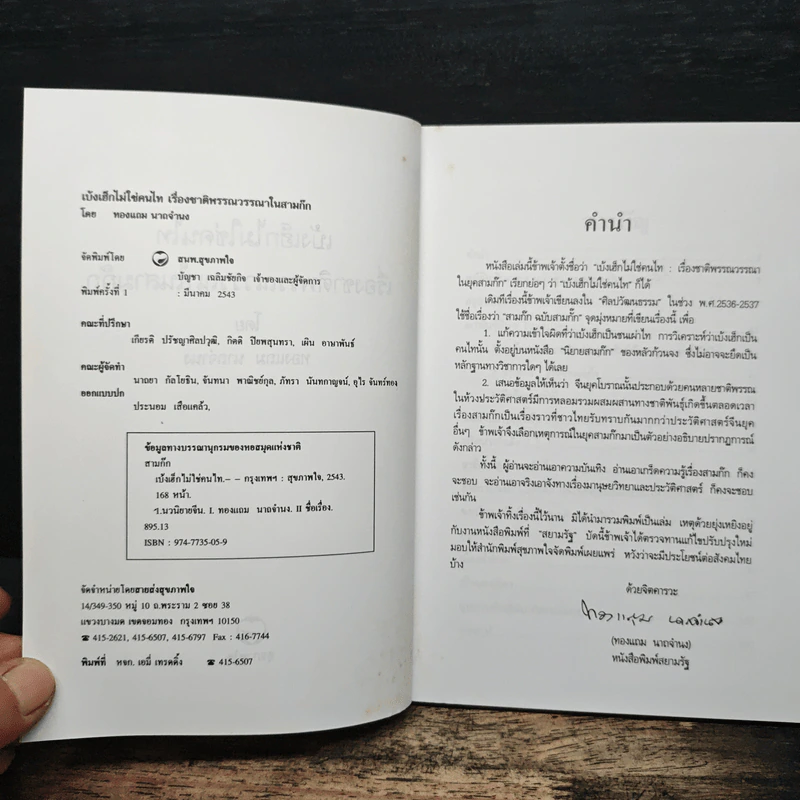 เบ้งเฮ็กไม่ใช่คนไท เรื่องชาติพรรณวรรณาในสามก๊ก
โดย ทองแถม นาถจำนง
จัดพิมพ์โดย สนพ.สุขภาพใจ
บัญชา เฉลิมชัยกิจ เจ้าของและผู้จัดการ
พิมพ์ครั้งที่ 1 : มีนาคม 2543
คณะที่ปรึกษา
เกียรติ ปรัชญาศิลปวุฒิ, กิตติ ปิยพสุนทรา, เผิน อาษาพันธ์
คณะผู้จัดทำ
นาถยา กัลโยธิน, จันทนา พาณิชย์กุล, ภัทรา นันทกาญจน์, อุไร จันทร์ทอง
ออกแบบปก
ประนอม เสือแคล้ว,
ข้อมูลทางบรรณานุกรมของหอสมุดแห่งชาติ
สามก๊ก
เบ้งเฮ็กไม่ใช่คนไท.-- กรุงเทพฯ : สุขภาพใจ, 2543.
168 หน้า.
1.นวนิยายจีน. I. ทองแถม นาถจำนง. II ชื่อเรื่อง.
895.13
ISBN : 974-7735-05-9
จัดจำหน่ายโดยสายส่งสุขภาพใจ
14/349-350 หมู่ 10 ถ.พระราม 2 ซอย 38
แขวงบางมด เขตจอมทอง กรุงเทพฯ 10150
☎ 415-2621, 415-6507, 415-6797 Fax : 416-7744
พิมพ์ที่ หจก. เอมี่ เทรดดิ้ง ☎ 415-6507
คำนำ
หนังสือเล่มนี้ข้าพเจ้าตั้งชื่อว่า "เบ้งเฮ็กไม่ใช่คนไท : เรื่องชาติพรรณวรรณา
ในยุคสามก๊ก" เรียกย่อๆ ว่า "เบ้งเฮ็กไม่ใช่คนไท" ก็ได้
เดิมทีเรื่องนี้ข้าพเจ้าเขียนลงใน "ศิลปวัฒนธรรม" ในช่วง พ.ศ.2536-2537
ใช้ชื่อเรื่องว่า "สามก๊ก ฉบับสามกั๊ก" จุดมุ่งหมายที่เขียนเรื่องนี้ เพื่อ
1. แก้ความเข้าใจผิดที่ว่าเบ้งเฮ็กเป็นชนเผ่าไท การวิเคราะห์ว่าเบ้งเฮ็กเป็น
คนไทนั้น ตั้งอยู่บนหนังสือ "นิยายสามก๊ก" ของหลัวก้วนจง ซึ่งไม่อาจจะยึดเป็น
หลักฐานทางวิชาการใดๆ ได้เลย
2. เสนอข้อมูลให้เห็นว่า จีนยุคโบราณนั้นประกอบด้วยคนหลายชาติพรรณ
ในห้วงประวัติศาสตร์มีการหลอมรวมผสมผสานทางชาติพันธุ์เกิดขึ้นตลอดเวลา
เรื่องสามก๊กเป็นเรื่องราวที่ชาวไทยรับทราบกันมากกว่าประวัติศาสตร์จีนยุค
อื่นๆ ข้าพเจ้าจึงเลือกเหตุการณ์ในยุคสามก๊กมาเป็นตัวอย่างอธิบายปรากฏการณ์
ดังกล่าว
ทั้งนี้ ผู้อ่านจะอ่านเอาความบันเทิง อ่านเอาเกร็ดความรู้เรื่องสามก๊ก ก็คง
จะชอบ จะอ่านเอาจริงเอาจังทางเรื่องมานุษยวิทยาและประวัติศาสตร์ ก็คงจะชอบ
เช่นกัน
ข้าพเจ้าทิ้งเรื่องนี้ไว้นาน มิได้นำมารวมพิมพ์เป็นเล่ม เหตุด้วยยุ่งเหยิงอยู่
กับงานหนังสือพิมพ์ที่ "สยามรัฐ" บัดนี้ข้าพเจ้าได้ตรวจทานแก้ไขปรับปรุงใหม่
มอบให้สำนักพิมพ์สุขภาพใจจัดพิมพ์เผยแพร่ หวังว่าจะมีประโยชน์ต่อสังคมไทย
บ้าง
ด้วยจิตคารวะ
ทองแถม นาถจำนง
(ทองแถม นาถจำนง)
หนังสือพิมพ์สยามรัฐ